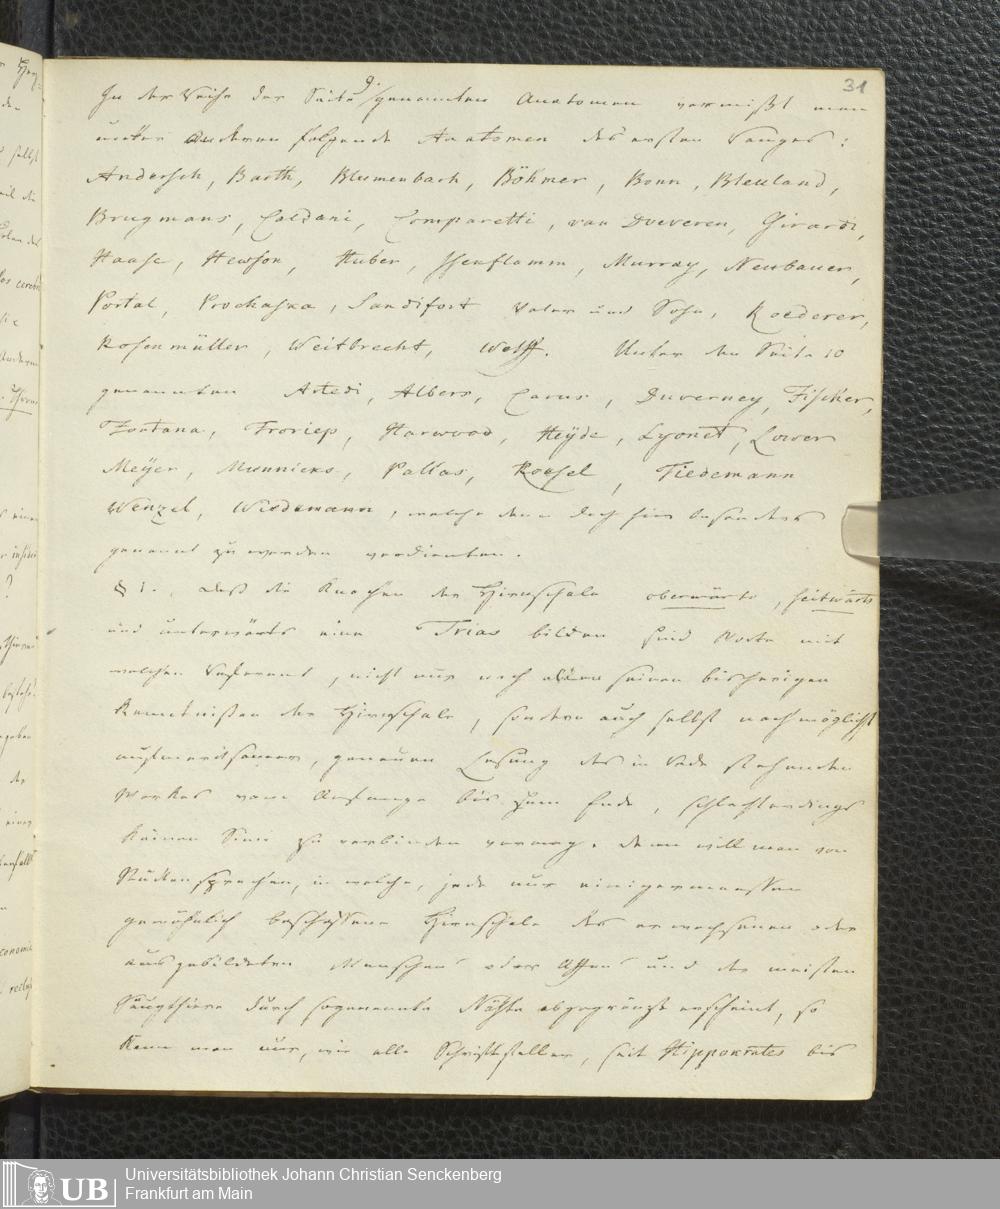 31
In der Reihe der Seite 9. genannten Anatomen vermißt man
unter anderen folgende Anatomen des ersten Ranges:
Andersch, Barth, Blumenbach, Böhmer, Bonn, Bleuland,
Brugmans, Caldani, Comparetti, van Doeveren, Girardi,
Haase, Hewson, Huber, Isenflamm, Murray, Neubauer,
Portal, Prochaska, Sandifort Vater und Sohn, Roederer,
Rosenmüller, Weitbrecht, Wolff. Unter den Seite 10
genannten Artedi, Albers, Carus, Duverney, Fischer,
Fontana, Froriep, Harwood, Heyde, Lyonet, Lower
Meyer, Munnicks, Pallas, Roesel, Tiedemann
Wenzel, Wiedemann, welche denn doch hier besonders
genannt zu werden verdienten.
§ 1. Daß die Knochen der Hirnschale oberwärts, seitwärts
und unterwärts eine Trias bilden sind Worte mit
welchen Referent, nicht nur nach allen seinen bisherigen
Kenntnißen der Hirnschale, sondern auch selbst nach möglichst
aufmerksamer, genauen Lesung des in Rede stehenden
Werkes vom Anfange bis zum Ende, schlechterdings
keinen Sinn zu verbinden vermag. denn will man von
Stücken sprechen, in welche, jede nur einigermaassen
gewöhnlich beschaffene Hirnschale des erwachsenen oder
ausgebildeten Menschen oder Affen und der meisten
Säugthiere durch sogenannte Nähte abgegränzt erscheint, so
kann man nur, wie alle Schriftsteller, seit Hippokrates bis
UB
Universitätsbibliothek Johann Christian Senckenberg
Frankfurt am Main